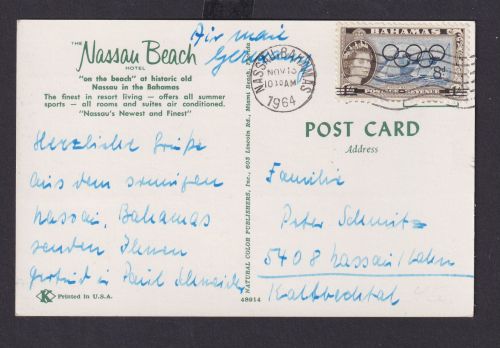 THE
Nassau Beach
HOTEL
"on the beach" at historic old
Nassau in the Bahamas
The finest in resort living — offers all summer
sports — all rooms and suites air conditioned.
"Nassau's Newest and Finest"
Air mail
Germany
NASSAU·BAHAMAS
NOV 13
10 AM
1964
BAHAMAS
8d
POST CARD
Address
Herzliche Grüße
aus dem sonnigen
Nassau, Bahamas
senden Ihnen
Gertrud & Paul Schneider
Familie
Peter Schmitz
5408 Nassau/Lahn
Kaltbachtal
K
Printed in U.S.A.
NATURAL COLOR PUBLISHERS, Inc., 605 Lincoln Rd., Miami Beach,
48914